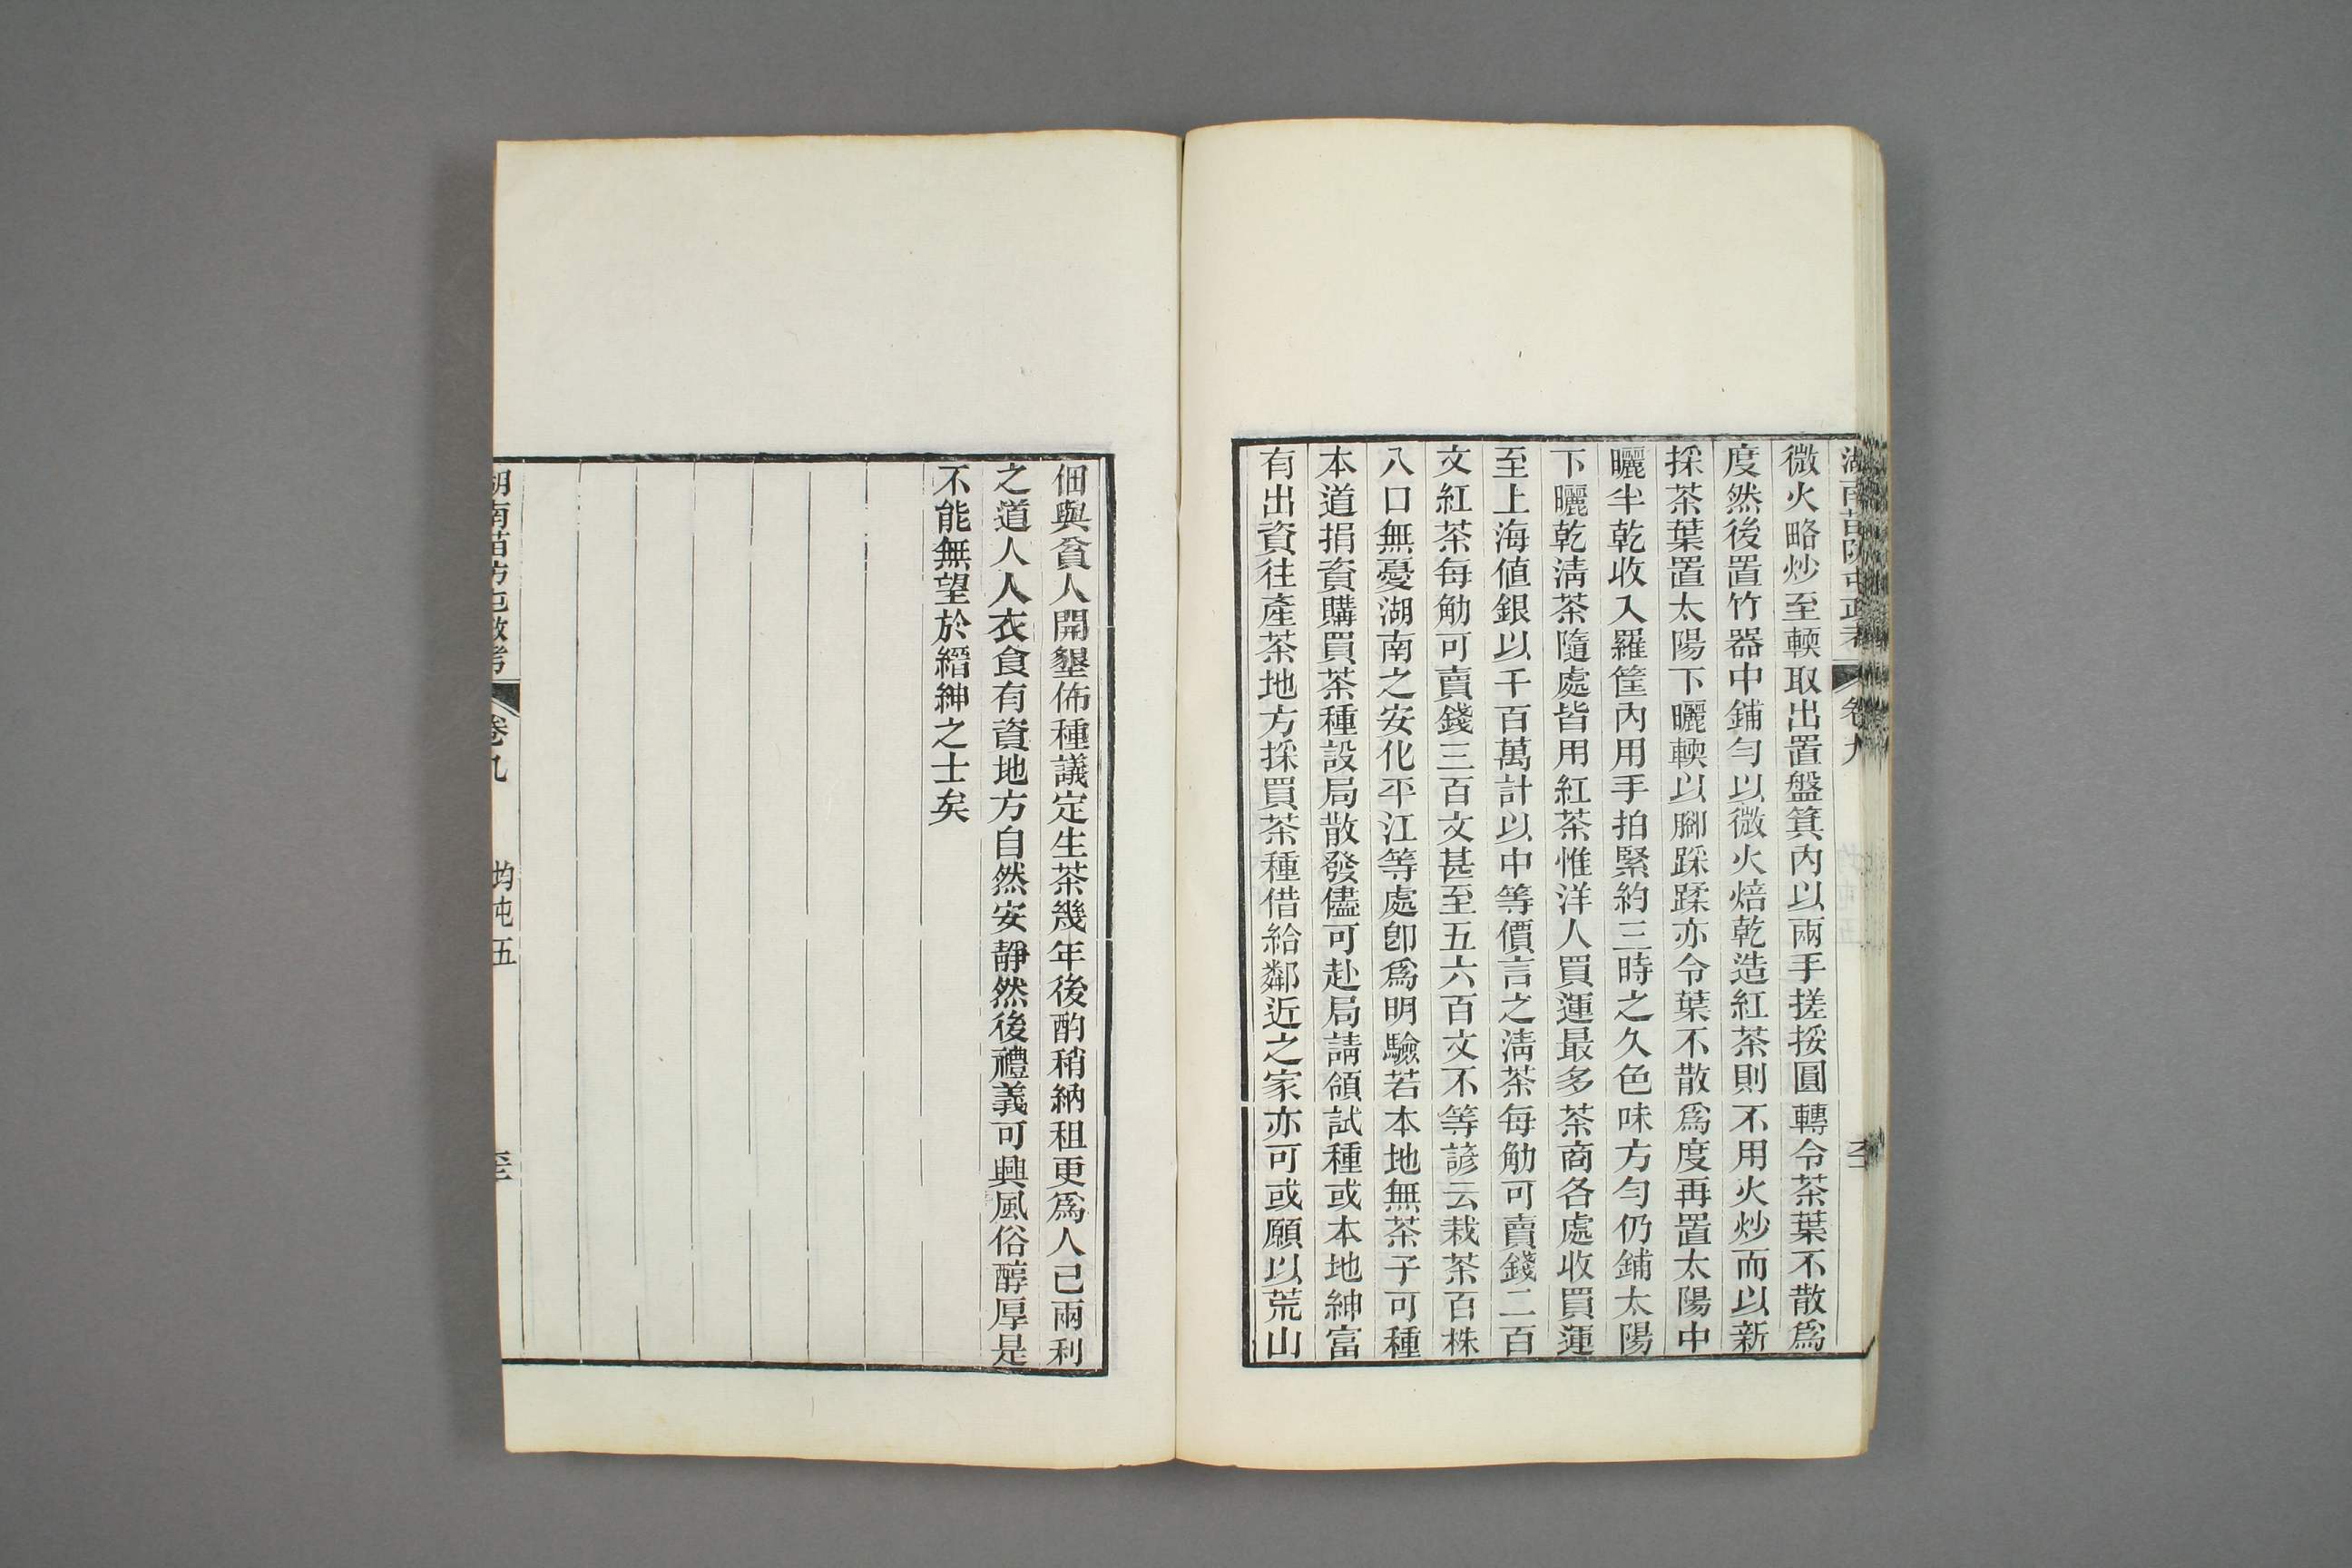 湖南苗防屯政考 卷九
微火略炒至輭取出置盤箕內以兩手搓挼圓轉令茶葉不散爲
度然後置竹器中鋪勻以微火焙乾造紅茶則不用火炒而以新
採茶葉置太陽下曬輭以腳踩蹂亦令葉不散爲度再置太陽中
曬半乾收入羅筐內用手拍緊約三時之久色味方勻仍鋪太陽
下曬乾淸茶隨處皆用紅茶惟洋人買運最多茶商各處收買運
至上海値銀以千百萬計以中等價言之淸茶每觔可賣錢二百
文紅茶每觔可賣錢三百文甚至五六百文不等諺云栽茶百株
八口無憂湖南之安化平江等處卽爲明驗若本地無茶子可種
本道捐資購買茶種設局散發儘可赴局請領試種或本地紳富
有出資往產茶地方採買茶種借給鄰近之家亦可或願以荒山
佃與貧人開墾佈種議定生茶幾年後酌稍納租更爲人己兩利
之道人人衣食有資地方自然安靜然後禮義可興風俗醇厚是
不能無望於縉紳之士矣
湖南苗防屯政考 卷九 均屯五